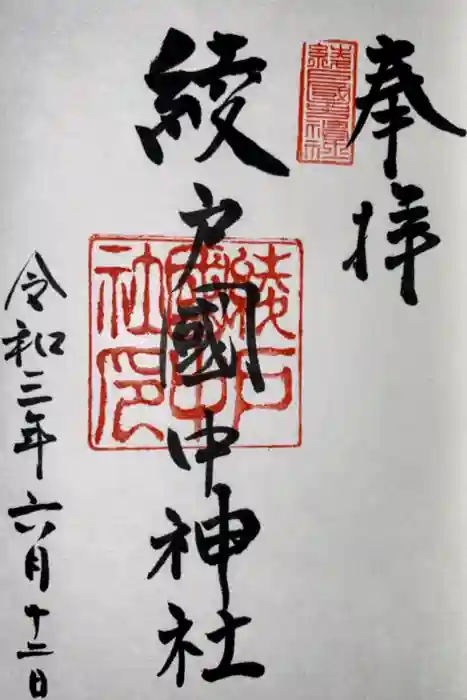 奉拝
綾戸國中神社
綾戸國中社印
令和三年六月十二日